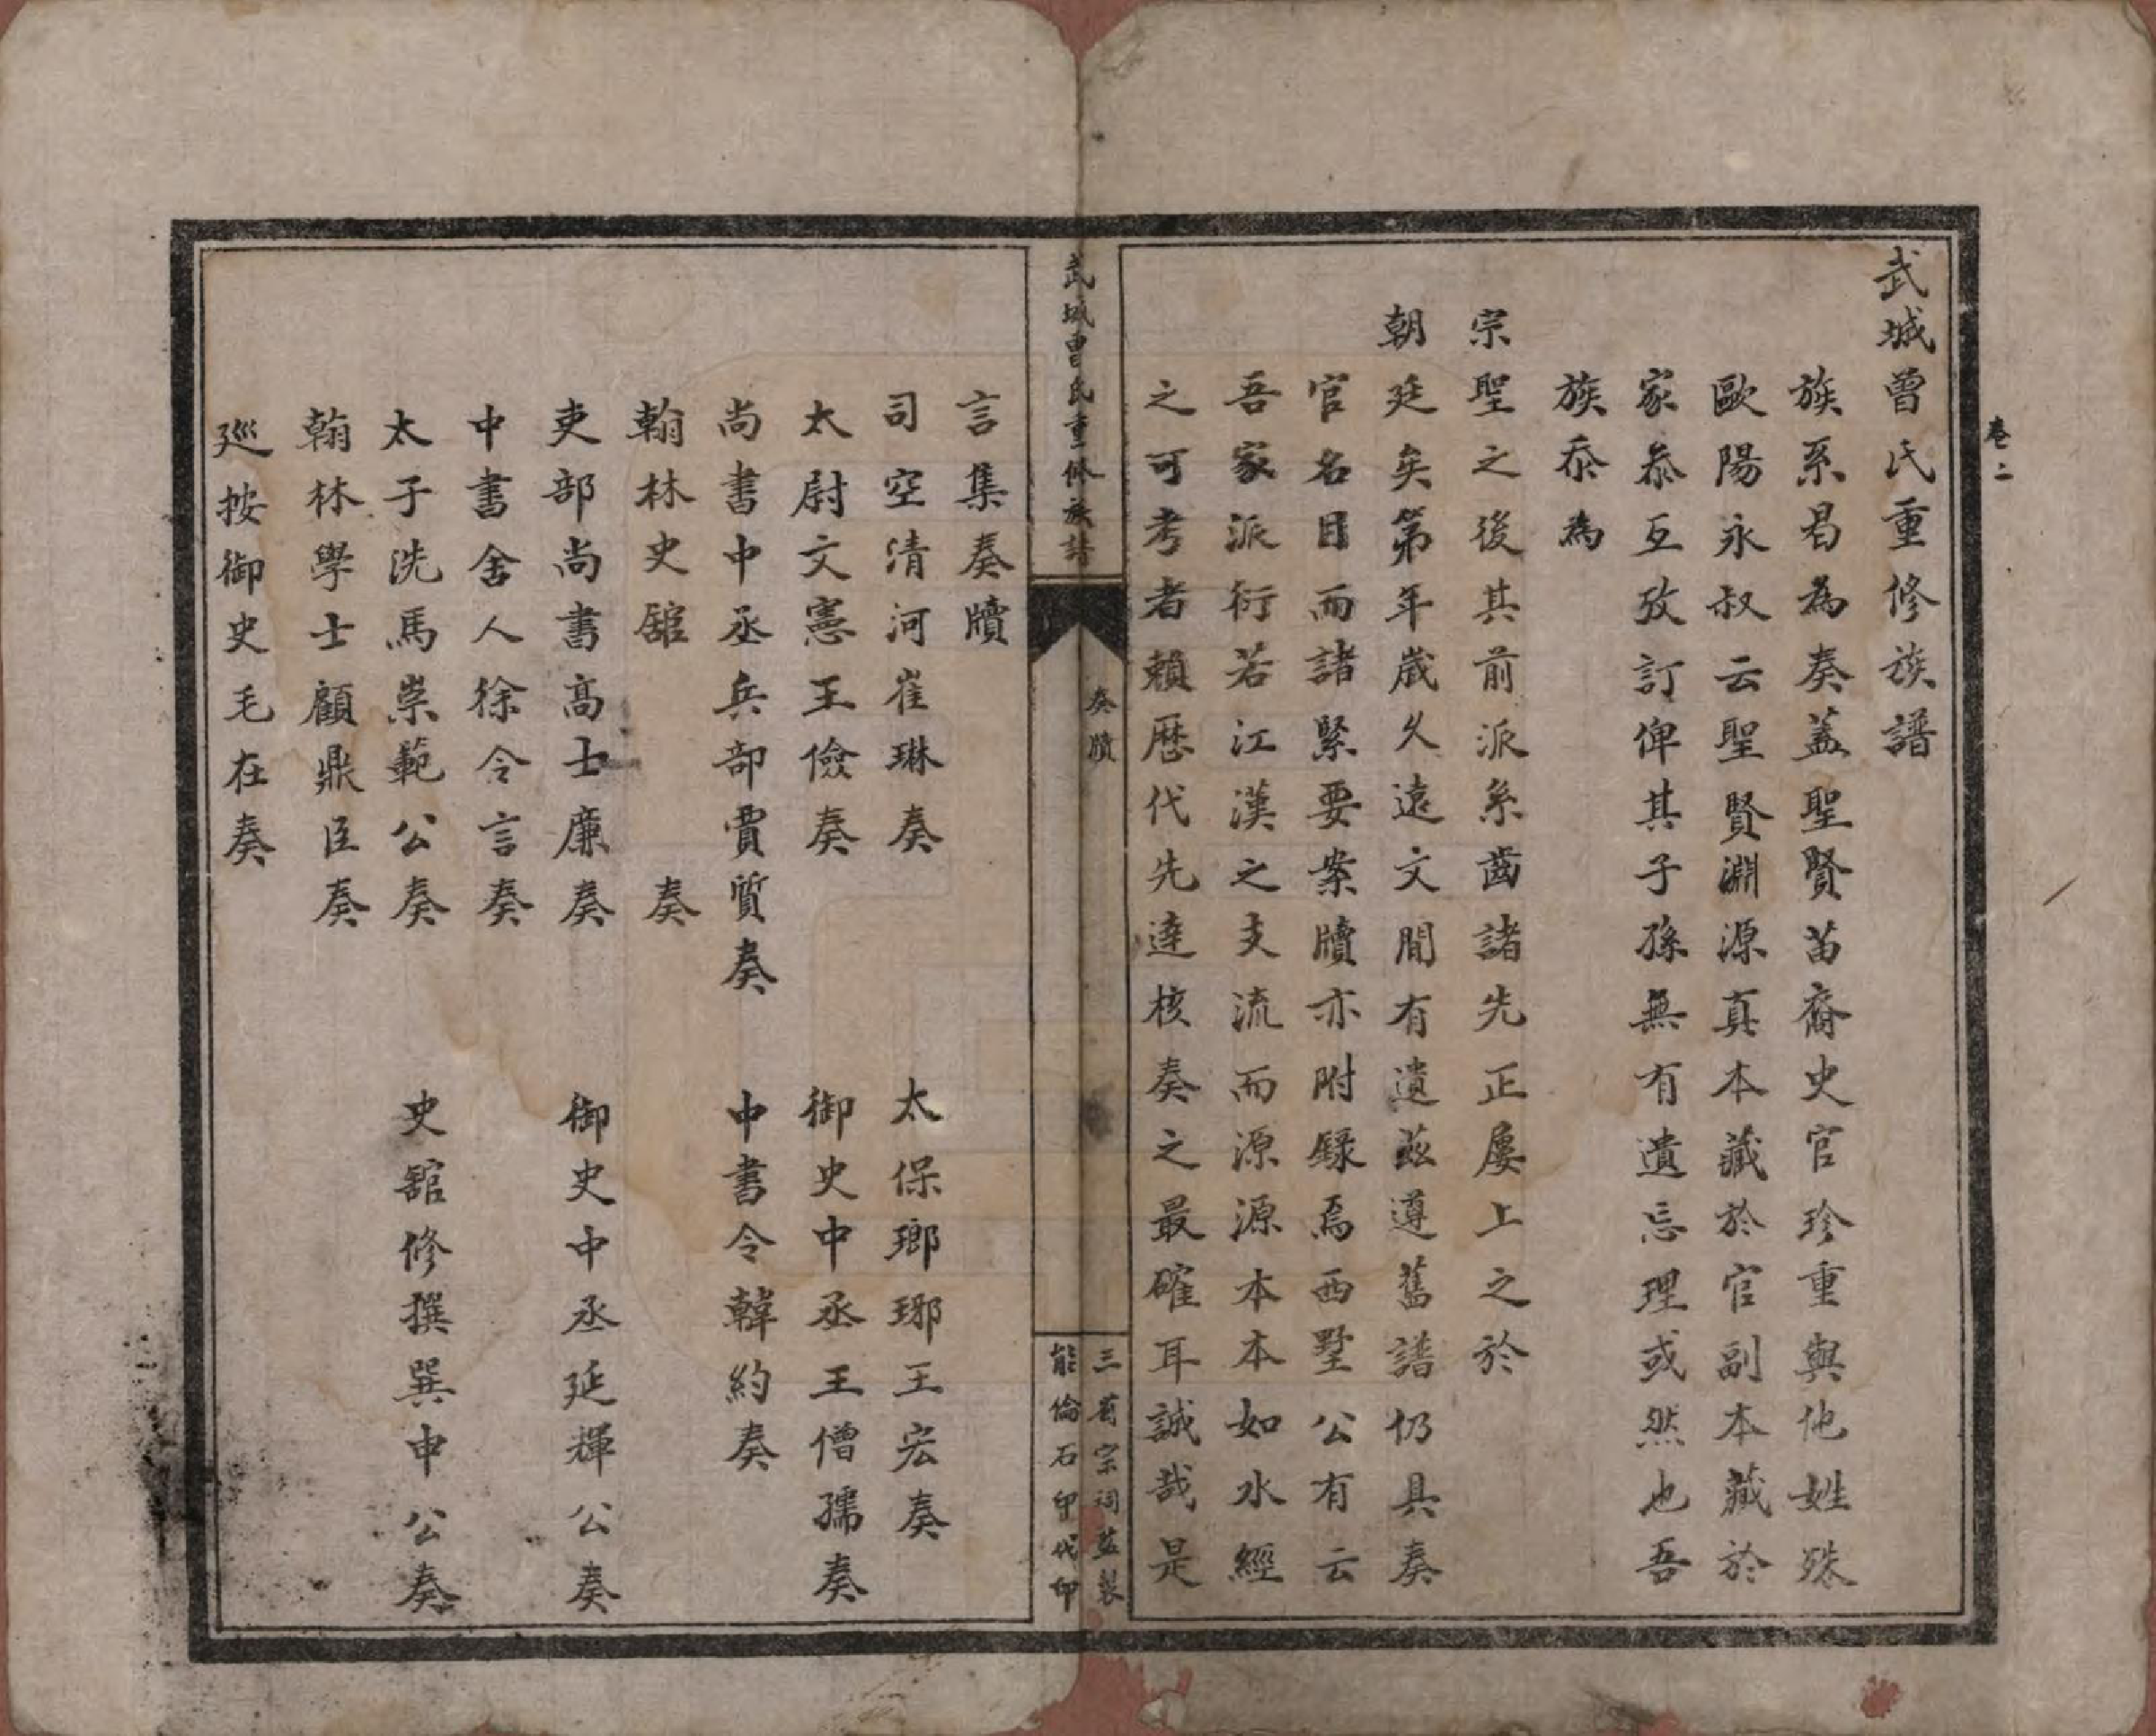 卷二
武城曾氏重修族譜
族系曷為奏蓋聖賢苗裔史官珍重與他姓殊
歐陽永叔云聖賢淵源真本藏於官副本藏於
家叅互攷訂俾其子孫無有遺忘理或然也吾
族忝為
宗聖之後其前派系齒諸先正屢上之於
朝廷矣第年歲久遠文間有遺茲遵舊譜仍具奏
官名目而諸緊要案牘亦附錄焉西墅公有云
吾家派衍若江漢之支流而源源本本如水經
之可考者賴歷代先達核奏之最確耳誠哉是
武城曾氏重修族譜
奏牘
三省宗祠監製
能倫石印代印
言集奏牘
司空清河崔琳奏
太保瑯琊王宏奏
太尉文憲王儉奏
御史中丞王僧孺奏
尚書中丞兵部賈質奏
中書令韓約奏
翰林史舘奏
吏部尚書高士廉奏
御史中丞延輝公奏
中書舍人徐令言奏
太子洗馬崇範公奏
史舘修撰巽申公奏
翰林學士顧鼎臣奏
巡按御史毛在奏